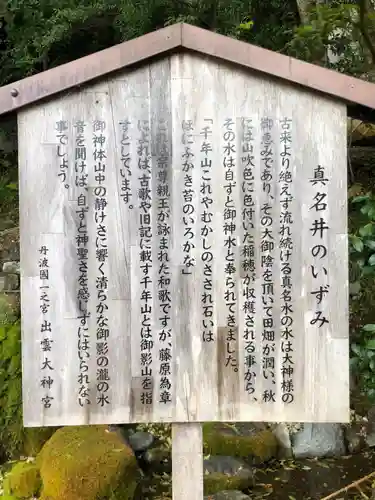 真名井のいずみ
古来より絶えず流れ続ける真名水の水は大神様の
御恵みであり、その大御陰を頂いて田畑が潤い、秋
には山吹色に色付いた稲穂が収穫される事から、
その水は自ずと御神水と奉られてきました。
「千年山これやむかしのさされ石いは
ほにふかき苔のいろかな」
これは宗尊親王が詠まれた和歌ですが、藤原為章
によれば、古歌や旧記に載す千年山とは御影山を指
すとしています。
御神体山中の静けさに響く清らかな御影の滝の水
音を聞けば、自ずと神聖さを感じずにはいられない
事でしょう。
丹波國一之宮 出雲大神宮